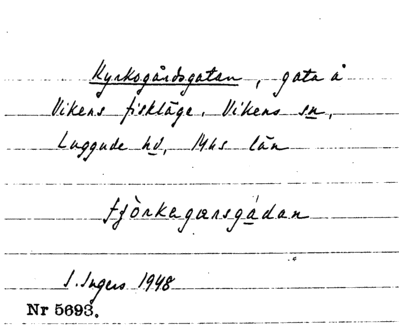 Kyrkogårdsgatan, gata å
Vikens fiskläge, Vikens sn,
Luggude hd, Mhs län
fjörkagarsgådan
I. Ingers 1948
Nr 5693.